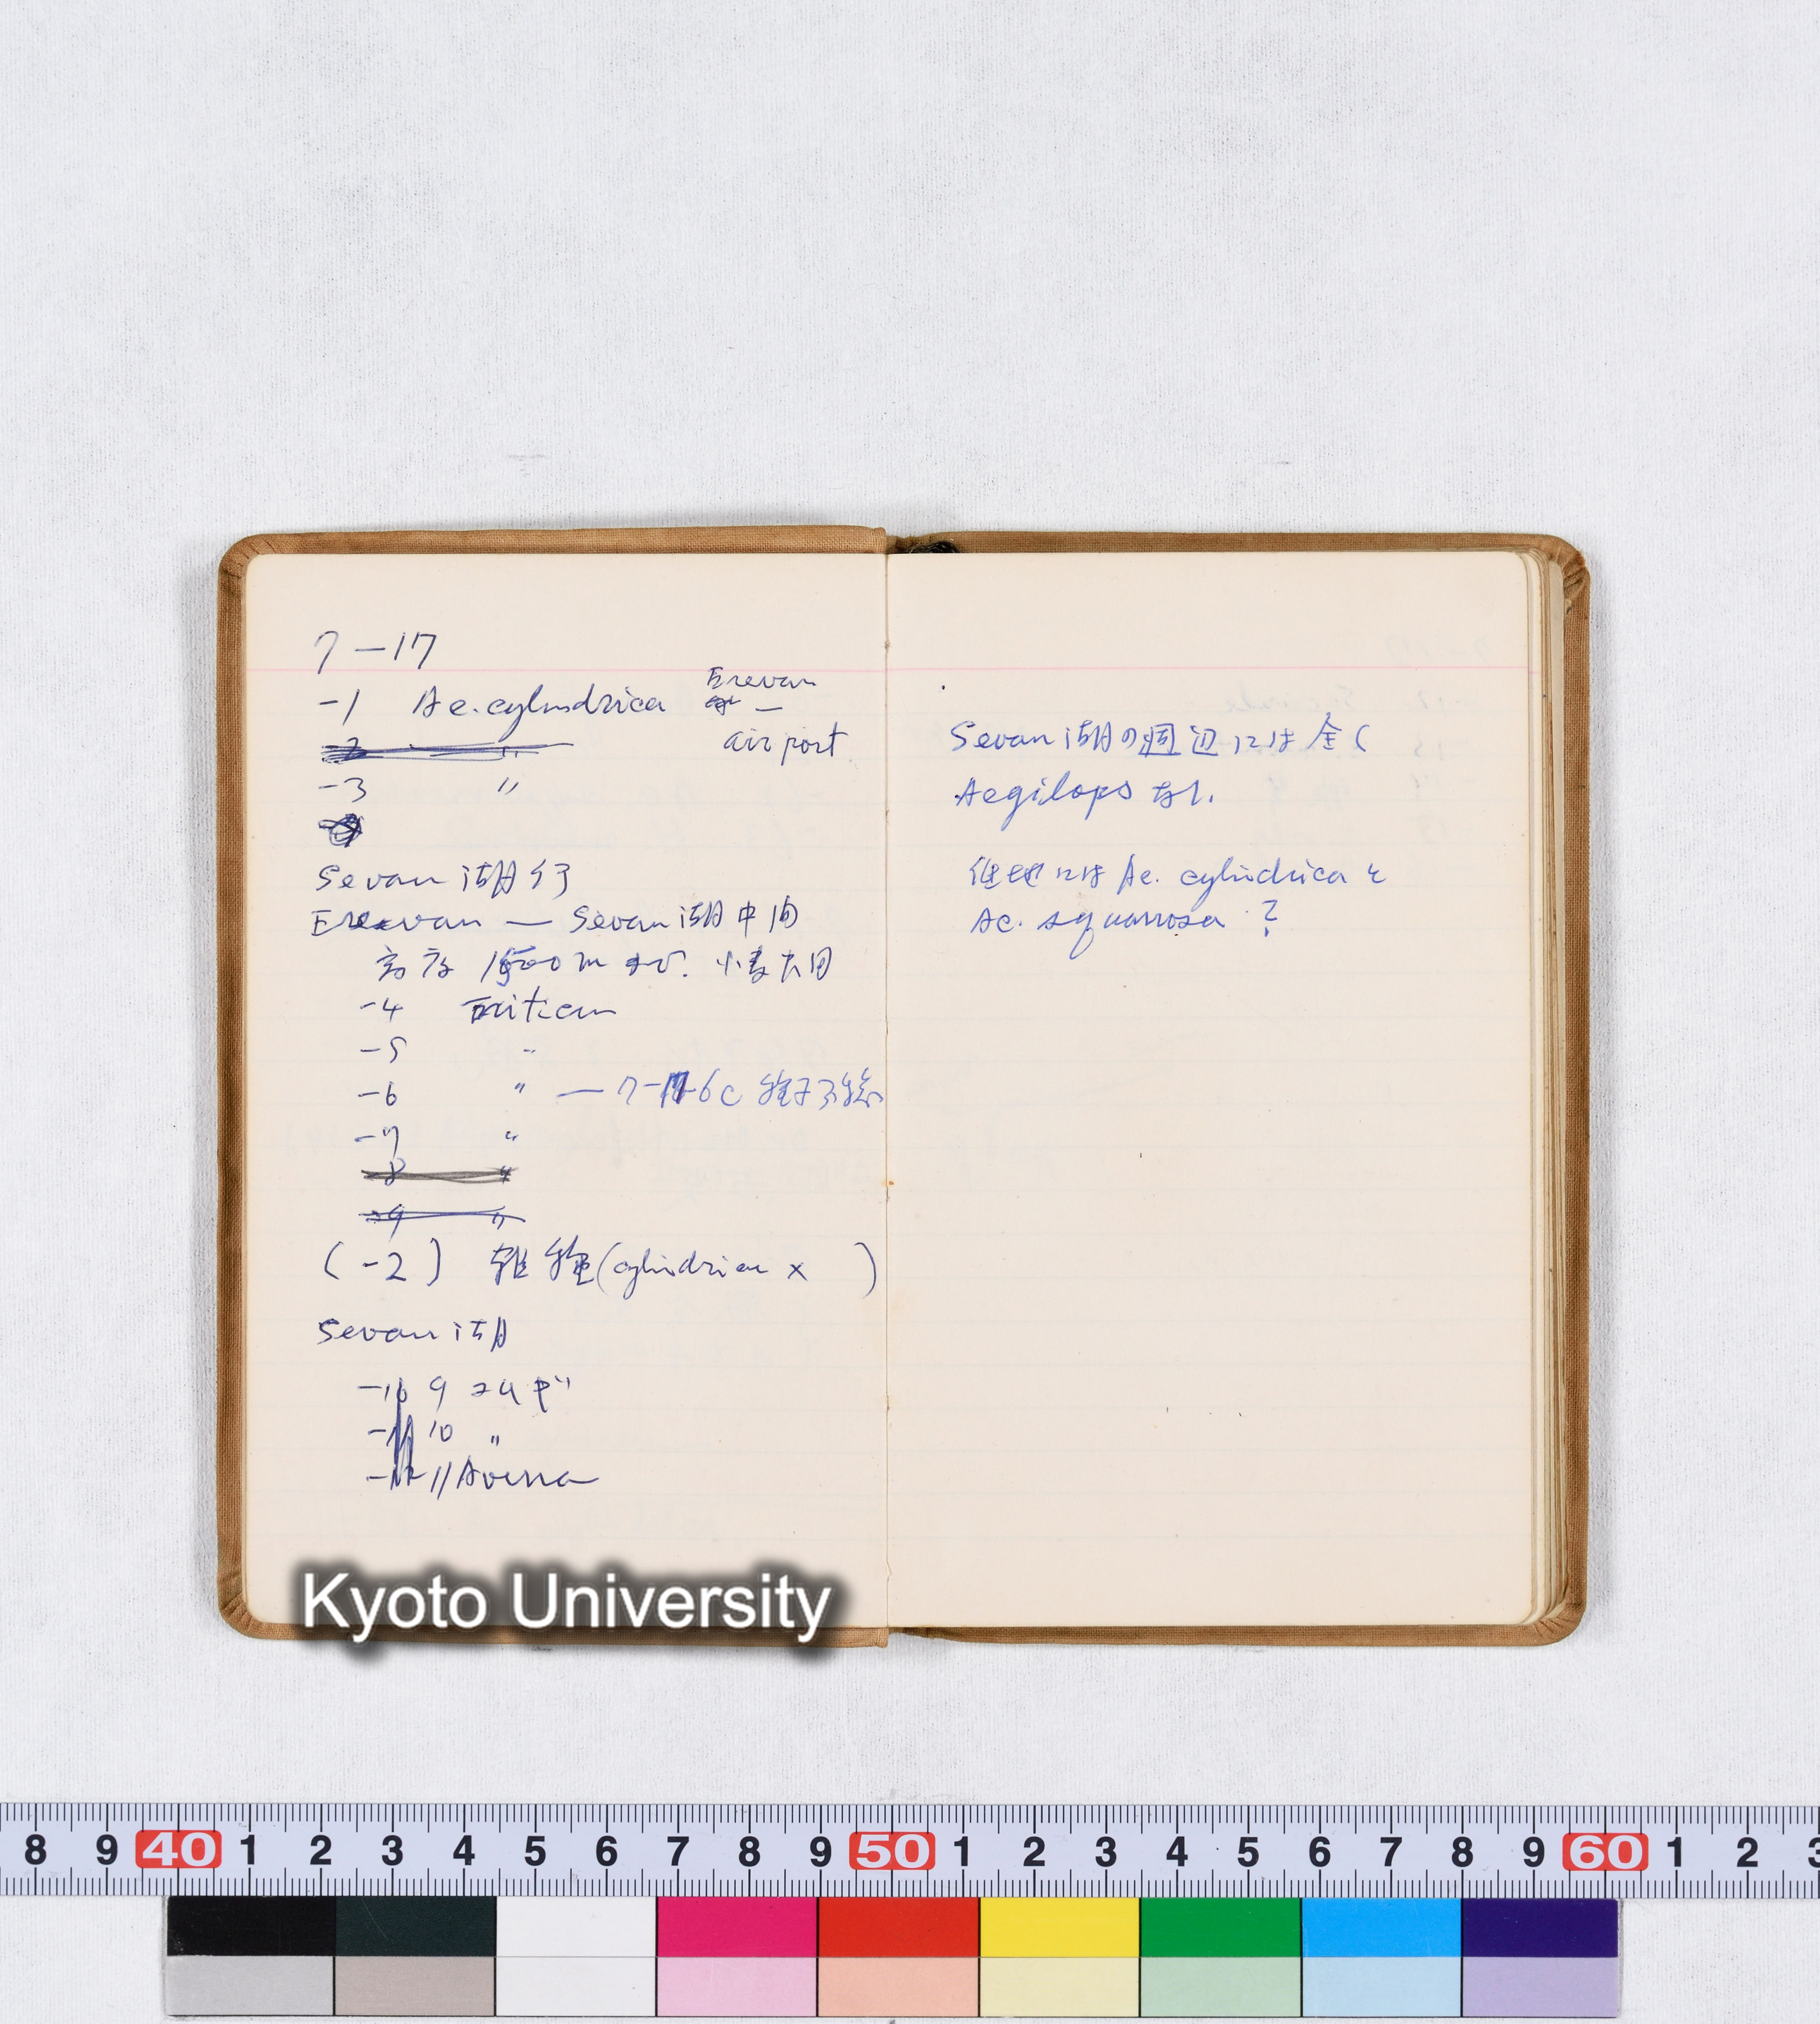 7-17
-1 Ae. cylindrica Erevan —
airport
-2 〃
-3 〃
Sevan湖行
Erevan — Sevan湖中間
高度 1500m 小麦大田
-4 Triticum
-5 〃
-6 〃 — 7-17-6c
-7 〃
-8 〃
-9 〃
(-2) 雑種(cylindrica × )
Sevan湖
-10 9 コムギ
-11 10 〃
-12 11 Avena
Sevan湖の週辺には全く
Aegilops なし.
他地には Ae. cylindrica と
Ae. squarrosa ?
Kyoto University
8 9 40 1 2 3 4 5 6 7 8 9 50 1 2 3 4 5 6 7 8 9 60 1 2 3